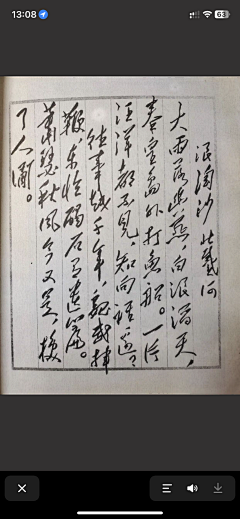 13:08
63
浪淘沙 北戴河
大雨落幽燕,白浪滔天,
秦皇島外打魚船。一片
汪洋都不見,知向誰邊?
往事越千年,魏武揮
鞭,東臨碣石有遺篇。
蕭瑟秋風今又是,換
了人間。